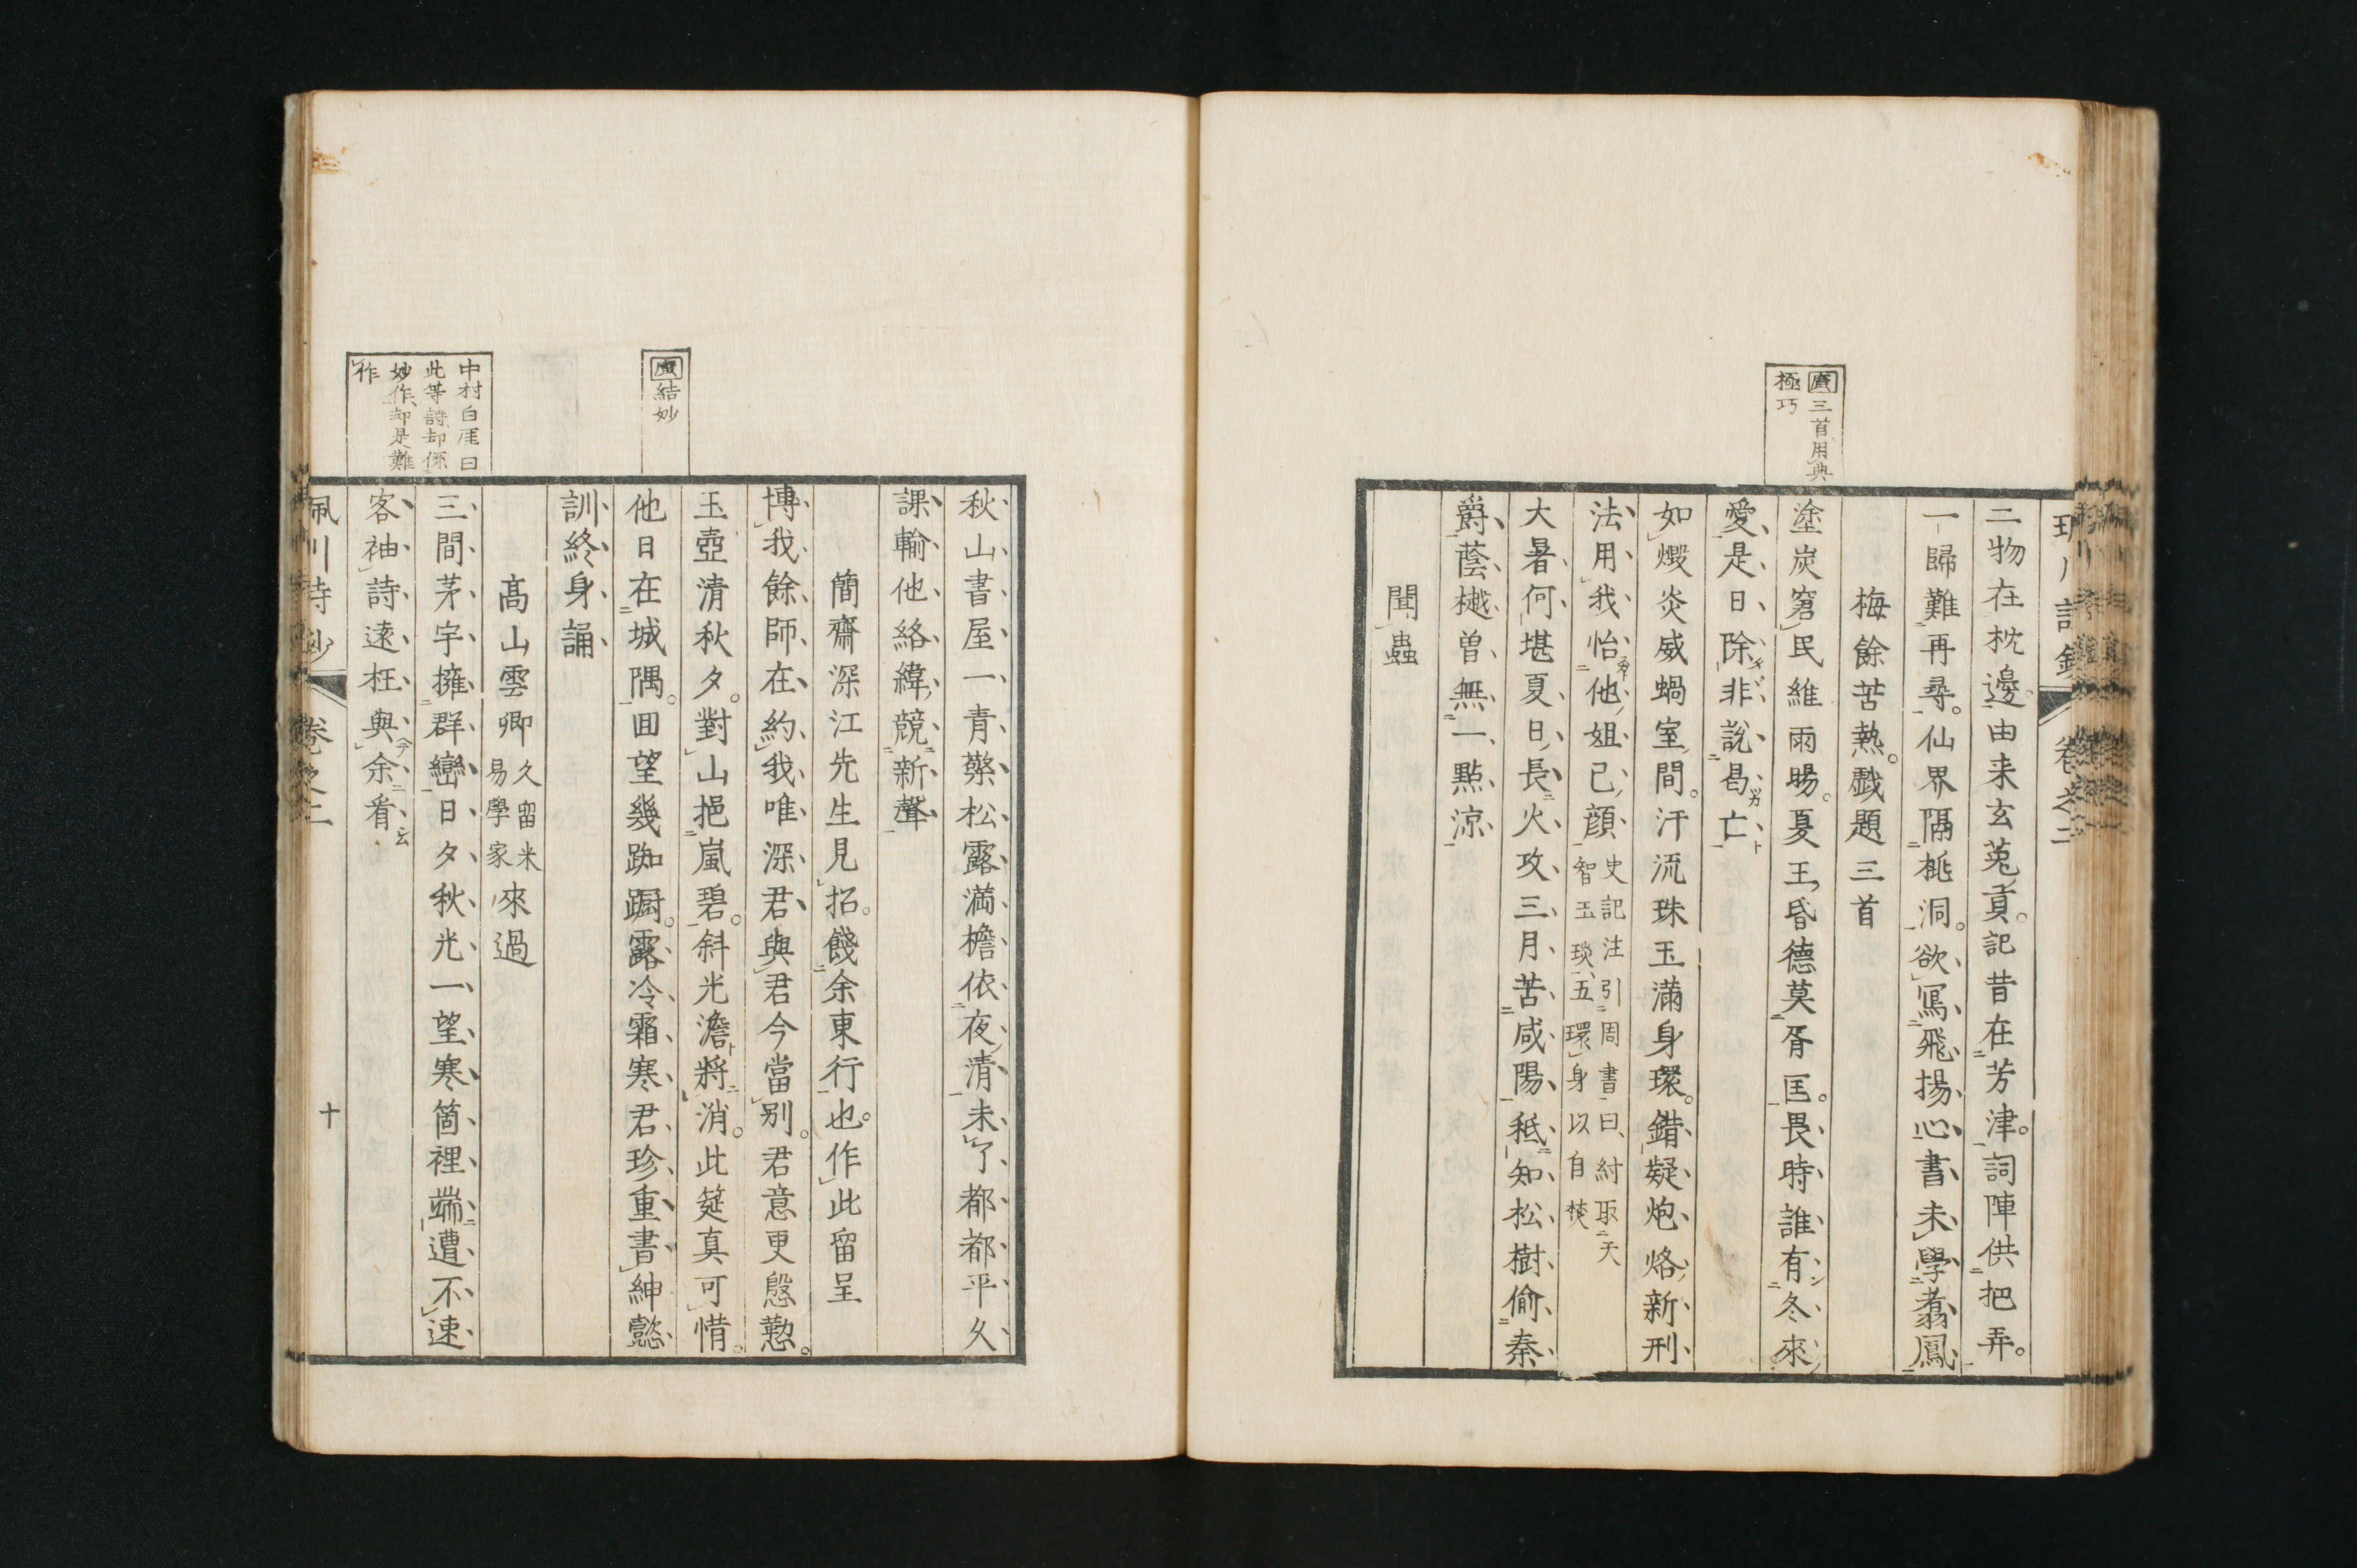 二物在枕邊由来玄菟貢記昔在芳津詞陣供把弄
一歸難再尋仙界隔桃洞欲寫飛揚心書未學翥鳳
梅餘苦熱戲題三首
塗炭窘民維雨暘夏王昏德莫胥匡畏時誰有冬來
愛是日除非說曷亡
如燬炎威蝸室間汗流珠玉滿身環錯疑炮烙新刑
法用我怡他妲己顏
史記注引周書曰紂取天
智玉琰五環身以自焚
大暑何堪夏日長火攻三月苦咸陽秪知松樹偷秦
爵蔭樾曽無一點涼
聞蟲
三首用典
極巧
秋山書屋一青檠松露満檐依夜清未了都都平久
課輸他絡緯競新聲
簡齋深江先生見招餞余東行也作此留呈
博我餘師在約我唯深君與君今當別君意更慇懃
玉壺清秋夕對山挹嵐碧斜光澹將消此筵真可惜
他日在城隅回望幾踟蹰露冷霜寒君珍重書紳懿
訓終身誦
高山雲卿
久留米
易學家
來過
三間茅宇擁群巒日夕秋光一望寒箇裡端遭不速
客袖詩遠枉與余看
結妙
中村白厓曰
此等詩却係
妙作却是難
作
卷之二
十